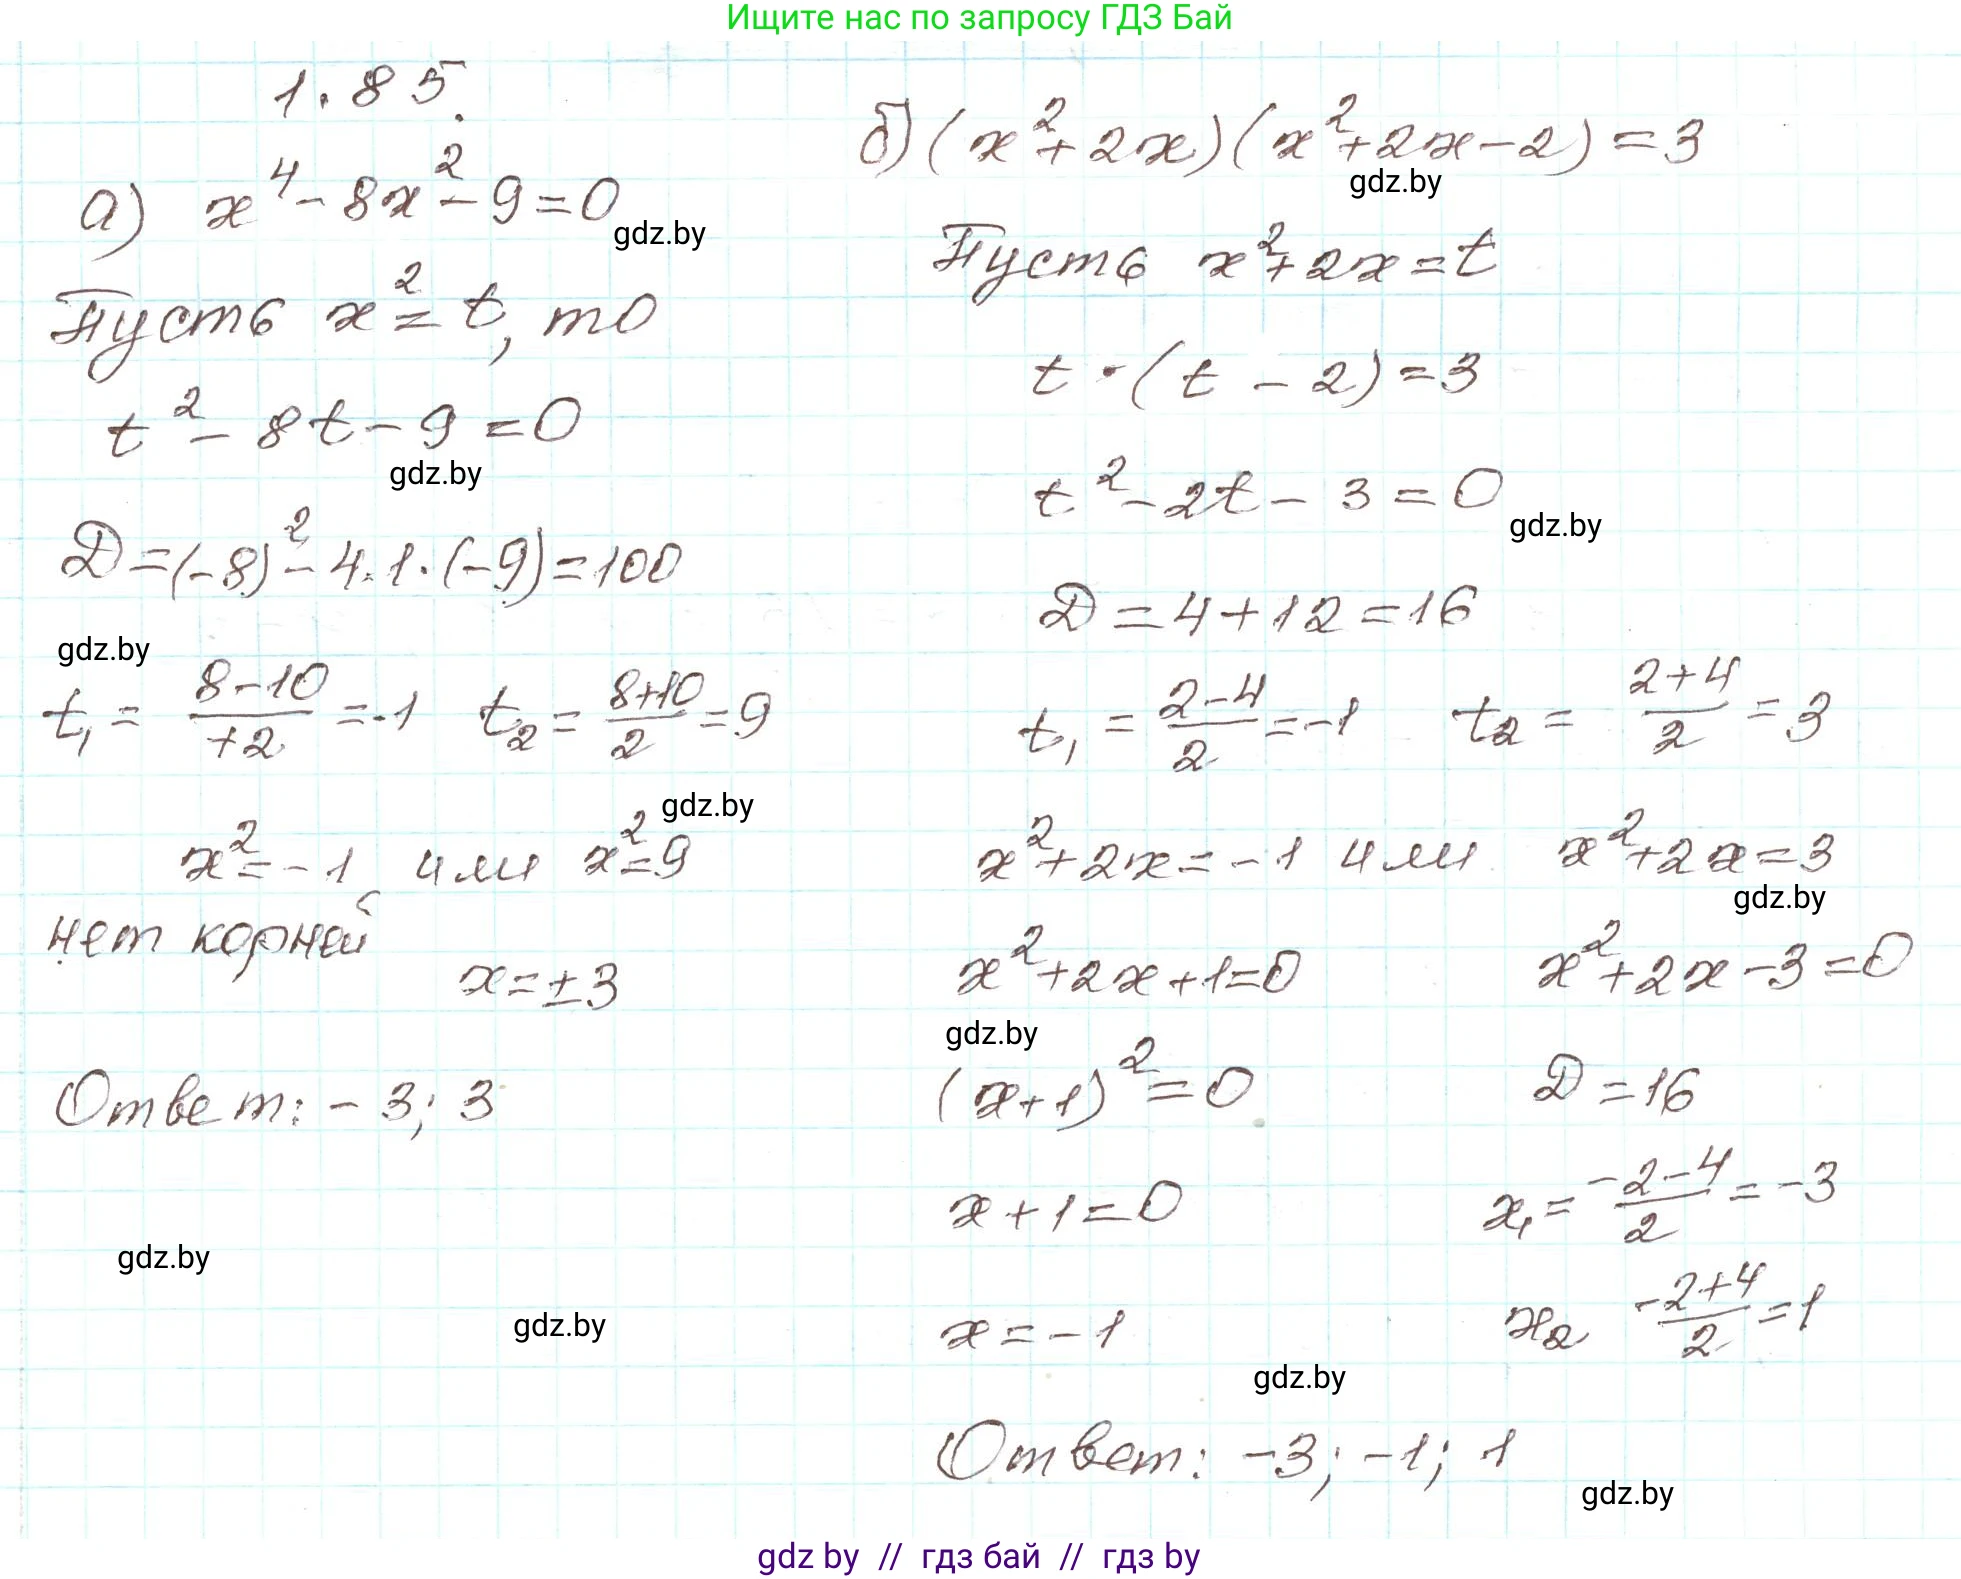 Ищите нас по запросу ГДЗ Бай
1.85.
а) x⁴ - 8x² - 9 = 0
gdz.by
Пусть x² = t, то
t² - 8t - 9 = 0
gdz.by
D = (-8)² - 4·1·(-9) = 100
gdz.by
t₁ = (8-10)/+2 = -1   t₂ = (8+10)/2 = 9
gdz.by
x² = -1 или x² = 9
нет корней
x = ±3
Ответ: -3; 3
gdz.by
gdz.by
б) (x² + 2x)(x² + 2x - 2) = 3
gdz.by
Пусть x² + 2x = t
t · (t - 2) = 3
t² - 2t - 3 = 0
gdz.by
D = 4 + 12 = 16
t₁ = (2-4)/2 = -1   t₂ = (2+4)/2 = 3
x² + 2x = -1 или x² + 2x = 3
gdz.by
x² + 2x + 1 = 0   x² + 2x - 3 = 0
gdz.by
(x+1)² = 0   D = 16
x + 1 = 0   x₁ = (-2-4)/2 = -3
x = -1   x₂ (-2+4)/2 = 1
gdz.by
Ответ: -3; -1; 1
gdz.by
gdz by // гдз бай // гдз by